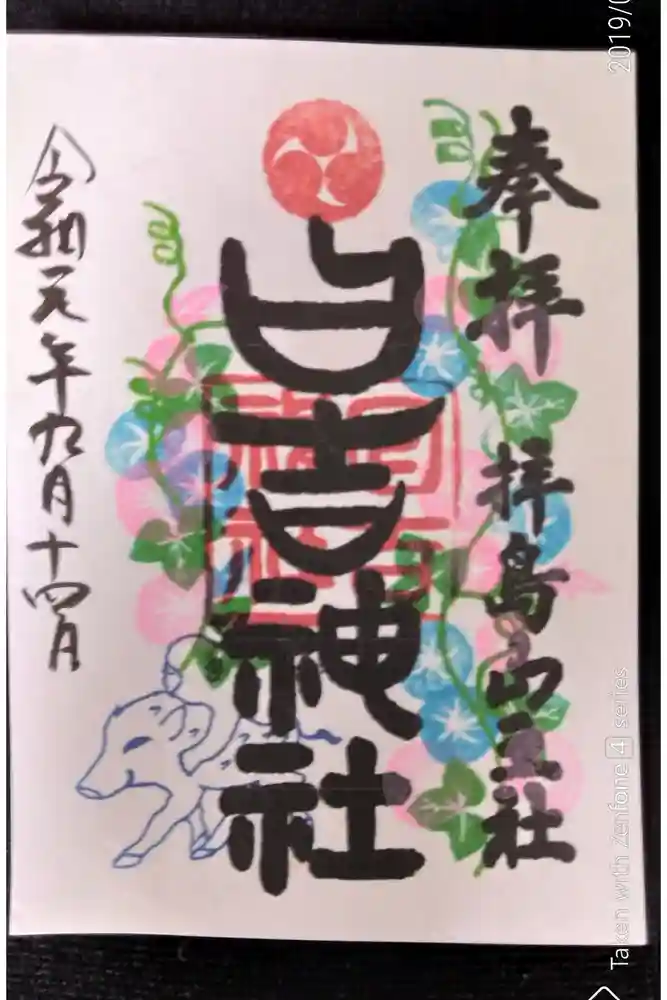 奉拝
拝島山王社
日吉神社
令和元年九月十四日
2019/0
Taken with Zenfone 4 series